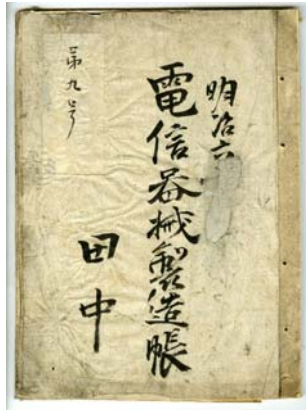 明治六
電信器械製造帳
田中
第九号